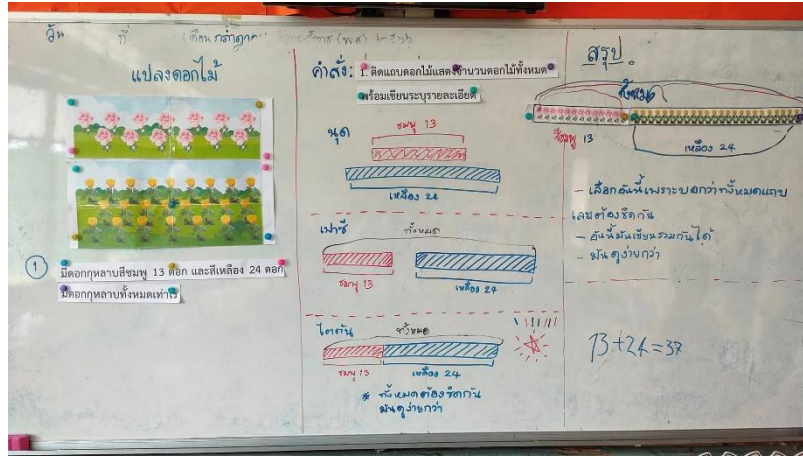 วัน ที่ เดือน กรกฎาคม
แปลงดอกไม้
1
มีดอกกุหลาบสีชมพู 13 ดอก และสีเหลือง 24 ดอก
มีดอกกุหลาบทั้งหมดเท่าไร
คำสั่ง: 1. ติดแถบดอกไม้แสดงจำนวนดอกไม้ทั้งหมด
พร้อมเขียนระบุรายละเอียด
นุด
ชมพู 13
เหลือง 24
เฟาซี
ทั้งหมด
ชมพู 13
เหลือง 24
ไตตัน
ทั้งหมด
ชมพู 13
เหลือง 24
* ทั้งหมดต้องชิดกัน
มันดูง่ายกว่า
สรุป
ทั้งหมด
ชมพู 13
เหลือง 24
- เลือกอันนี้เพราะบอกว่าทั้งหมดแถบ
และต้องชิดกัน
- อันนี้มันเขียนรวมกันได้
- มันดูง่ายกว่า
13+24=37